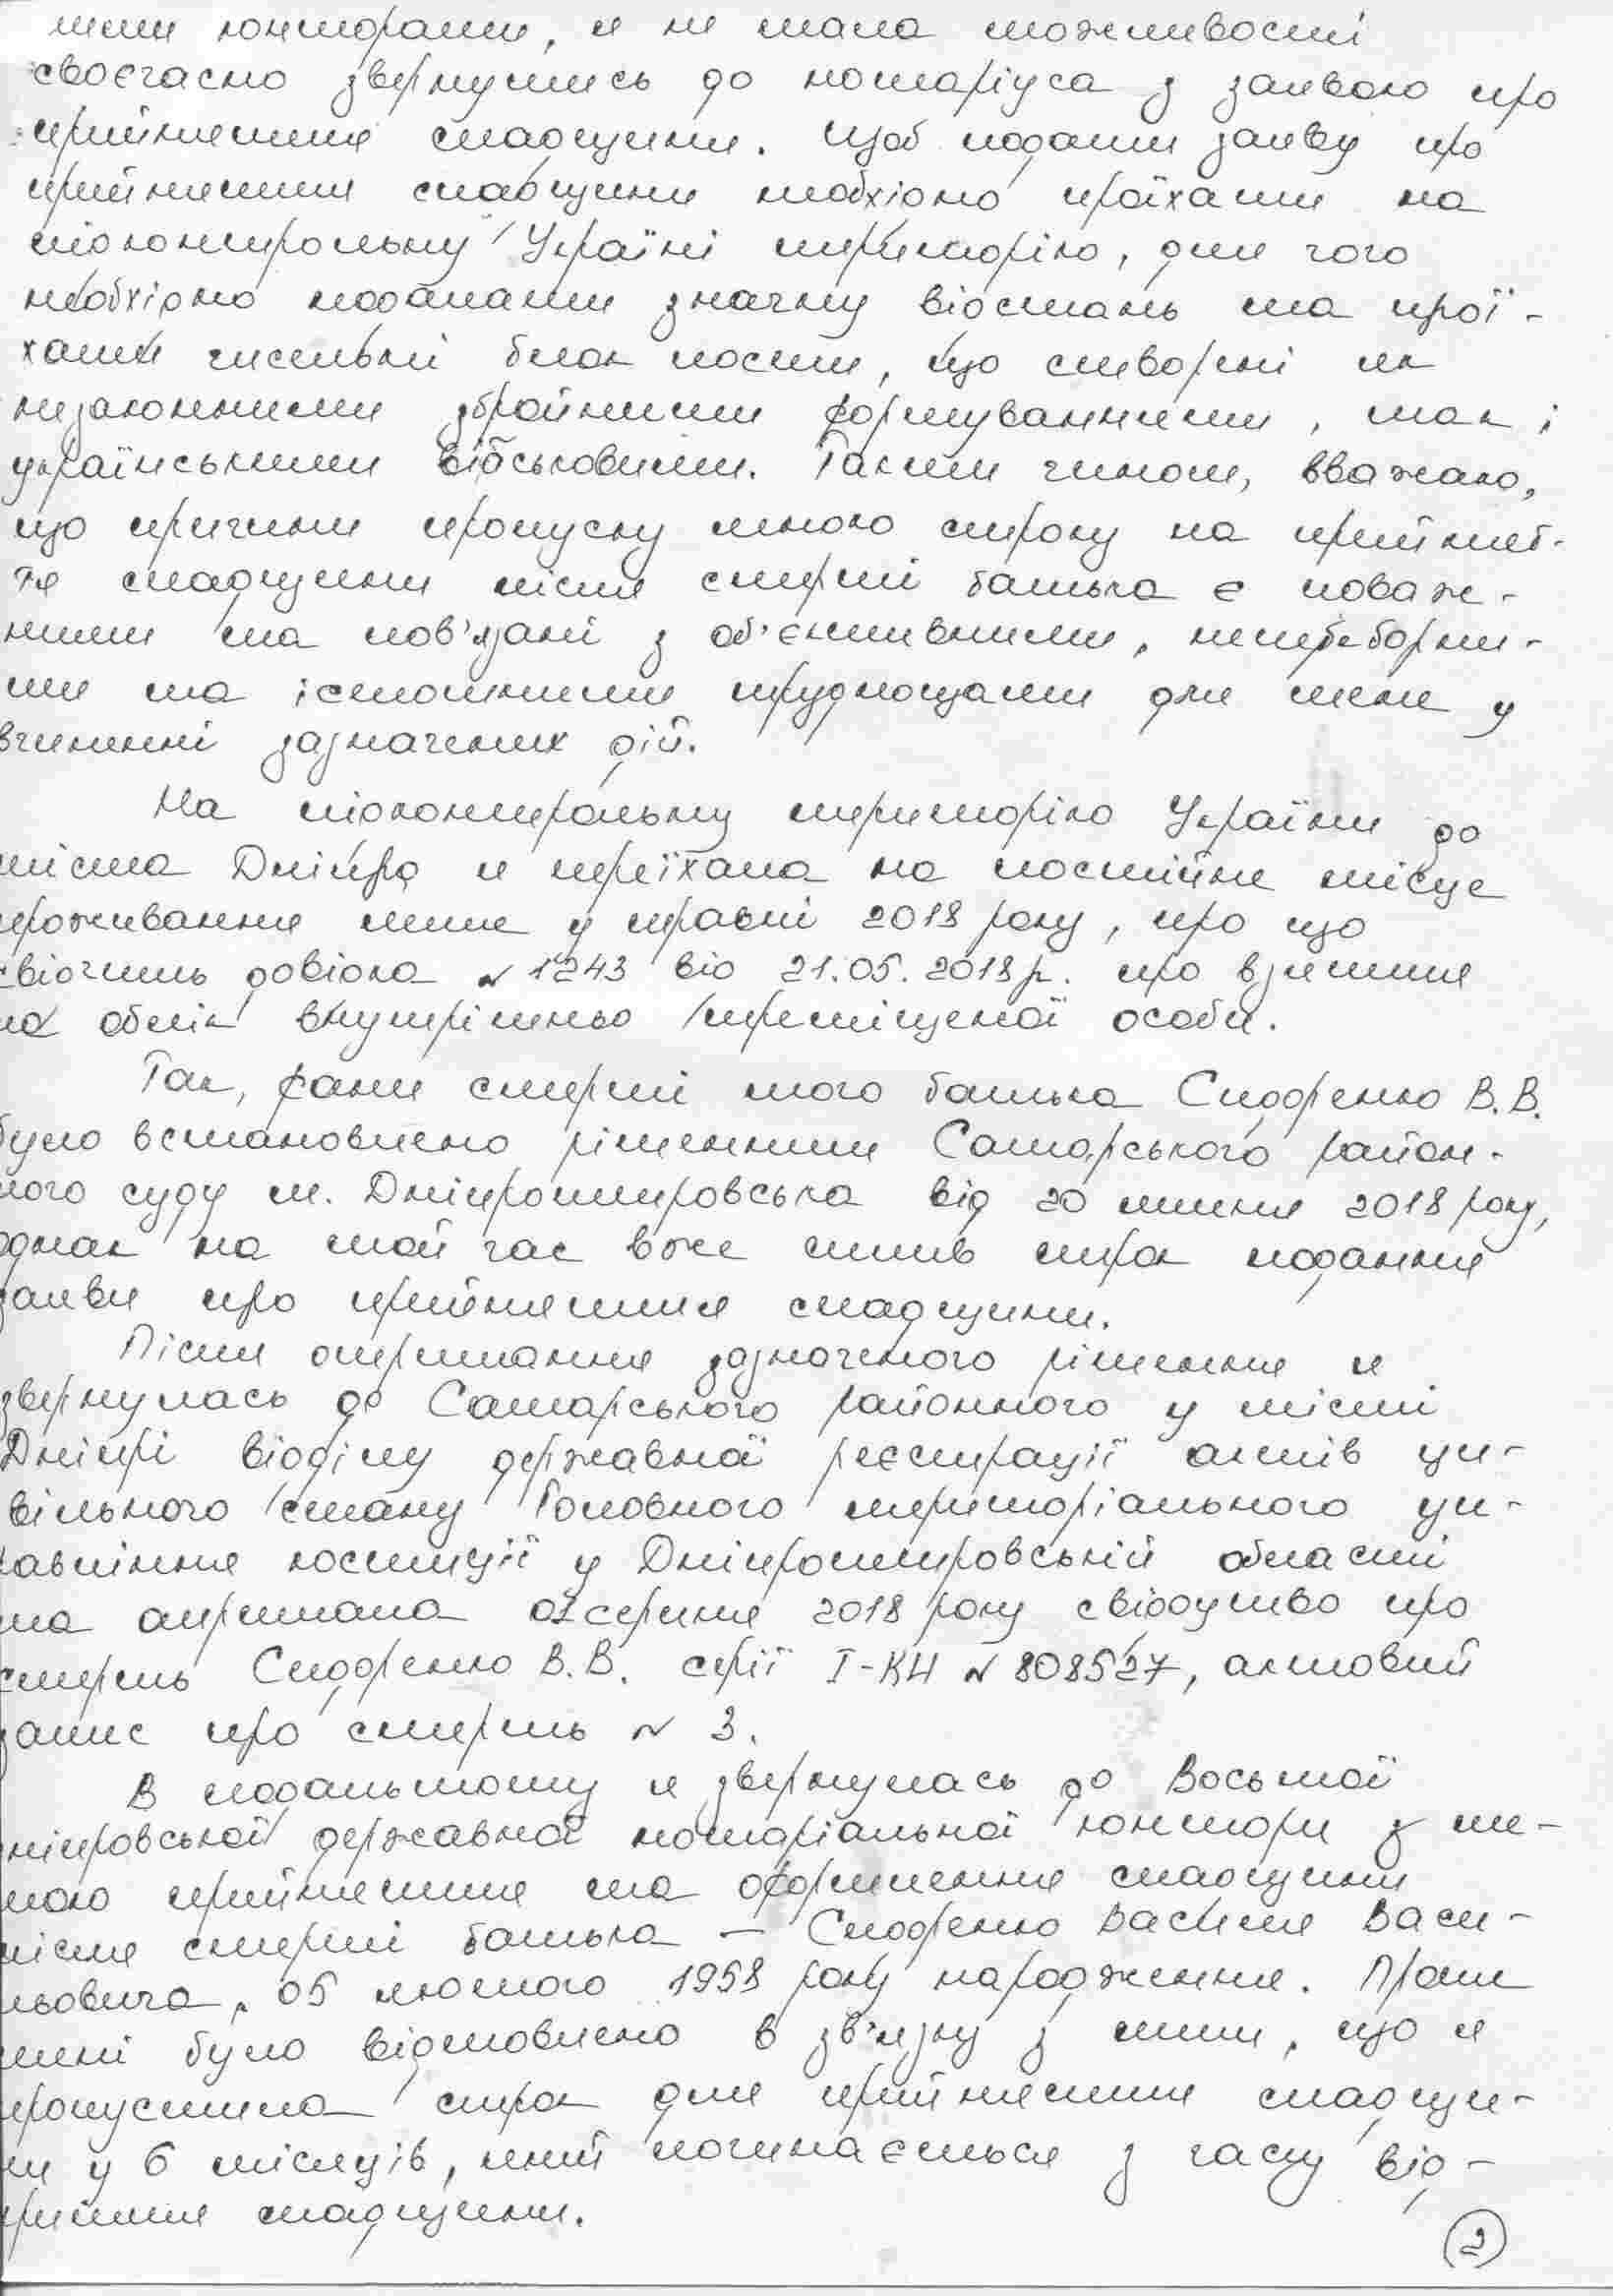 ними конторами, я не мала можливості
своєчасно звернутись до нотаріуса з заявою про
прийняття спадщини. Щоб подати заяву про
прийняття спадщини необхідно проїхати на
підконтрольну Україні територію, для чого
необхідно подолати значну відстань та прої-
хати чисельні блок пости, що створені як
незаконними збройними формуваннями, так і
українськими військовими. Таким чином, вважаю,
що причини пропуску мною строку на прийнят-
тя спадщини після смерті батька є поваж-
ними та пов'язані з об'єктивними, непереборни-
ми та істотними труднощами для мене у
вчиненні зазначених дій.
На підконтрольну територію України до
міста Дніпра я переїхала на постійне місце
проживання лише у травні 2018 року, про що
свідчить довідка № 1243 від 21.05.2018р. про взяття
на облік внутрішньо переміщеної особи.
Так, факт смерті мого батька Сидоренко В.В.
було встановлено рішенням Самарського район-
ного суду м. Дніпропетровська від 20 липня 2018 року,
однак на той час вже сплив строк подання
заяви про прийняття спадщини.
Після отримання зазначеного рішення я
звернулась до Самарського районного у місті
Дніпрі відділу державної реєстрації актів ци-
вільного стану Головного територіального уп-
равління юстиції у Дніпропетровській області
та отримала 02 серпня 2018 року свідоцтво про
смерть Сидоренко В.В. серії І-КИ № 808527, актовий
запис про смерть № 3.
В подальшому я звернулась до Восьмої
дніпровської державної нотаріальної контори з ме-
тою прийняття та оформлення спадщини
після смерті батька – Сидоренко Василя Васи-
льовича, 05 лютого 1958 року народження. Проте
мені було відмовлено в зв'язку з тим, що я
пропустила строк для прийняття спадщи-
ни у 6 місяців, який починається з часу від-
криття спадщини.
2